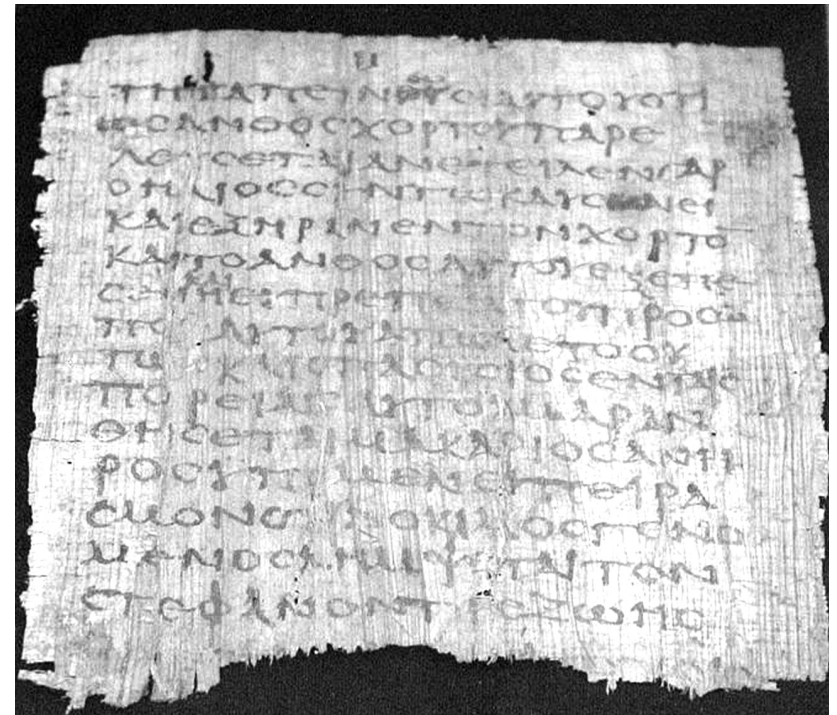 ΤΗΤΑΠΕΙΝΩϹΙΑΥΤΟΥΟΤΙ
ΩϹΑΝΘΟϹΧΟΡΤΟΥΠΑΡΕ
ΛΕΥϹΕΤΑΙΑΝΕΤΕΙΛΕΝΓΑΡ
ΟΗΛΙΟϹϹΥΝΤΩΚΑΥϹΩΝΕΙ
ΚΑΙΕΞΗΡΑΝΕΝΤΟΝΧΟΡΤΟ̅
ΚΑΙΤΟΑΝΘΟϹΑΥΤΟΥΕΞΕΠΕ
ϹΕΝΚΑΙΗΕΥΠΡΕΠΕΙΑΤΟΥΠΡΟϹΩ
ΠΟΥΑΥΤΟΥΑΠΩΛΕΤΟΟΥ
ΤΩϹΚΑΙΟΠΛΟΥϹΙΟϹΕΝΤΑΙϹ
ΠΟΡΕΙΑΙϹΑΥΤΟΥΜΑΡΑΝ
ΘΗϹΕΤΑΙΜΑΚΑΡΙΟϹΑΝΗ
ΡΟϹΥΠΟΜΕΝΕΙΠΕΙΡΑ
ϹΜΟΝΟΤΙΔΟΚΙΜΟϹΓΕΝΟ
ΜΕΝΟϹΛΗΜΨΕΤΑΙΤΟΝ
ϹΤΕΦΑΝΟΝΤΗϹΖΩΗϹ